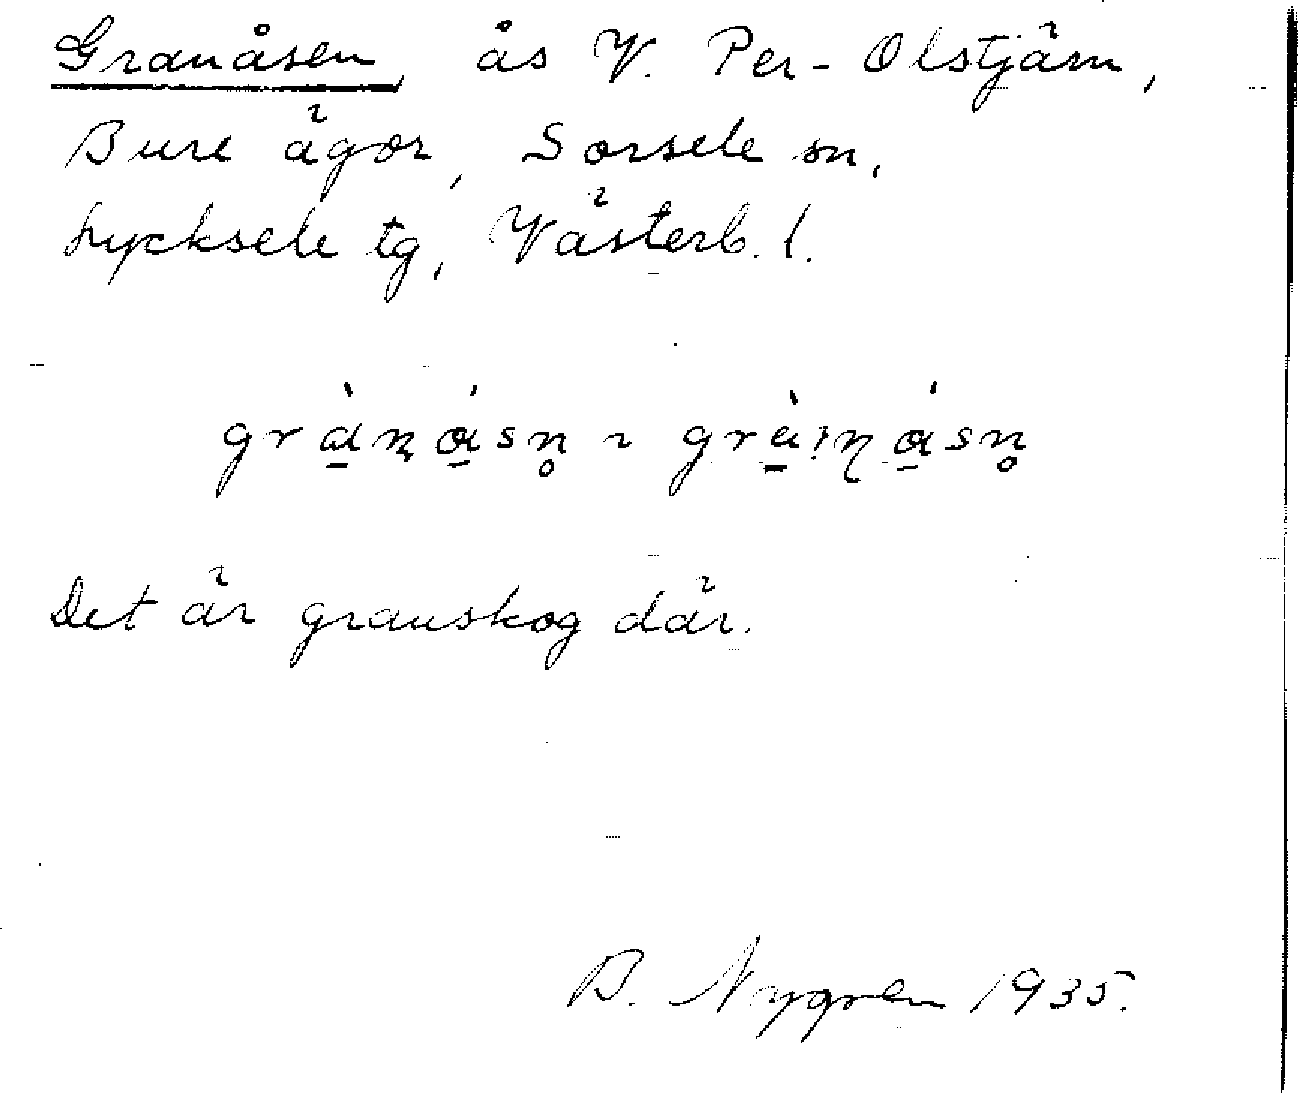 Granåsen, ås V. Per-Olstjärn,
Bure ägor, Sorsele sn,
Lycksele tg, Västerb. l.
grà̱ná̱sn̥ ~ grà̱꞉ɳá̱sn̥
Det är granskog där.
B. Nygren 1935.